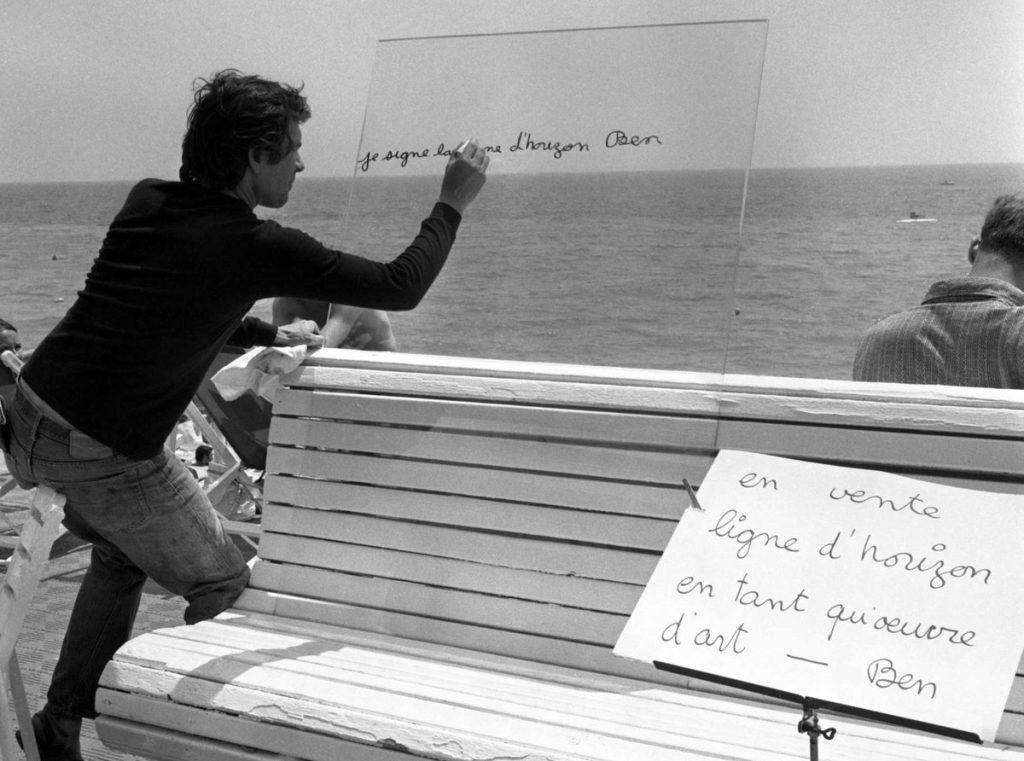 je signe la ne d'horizon Ben
en vente
ligne d'horizon
en tant qu'oeuvre
d'art — Ben